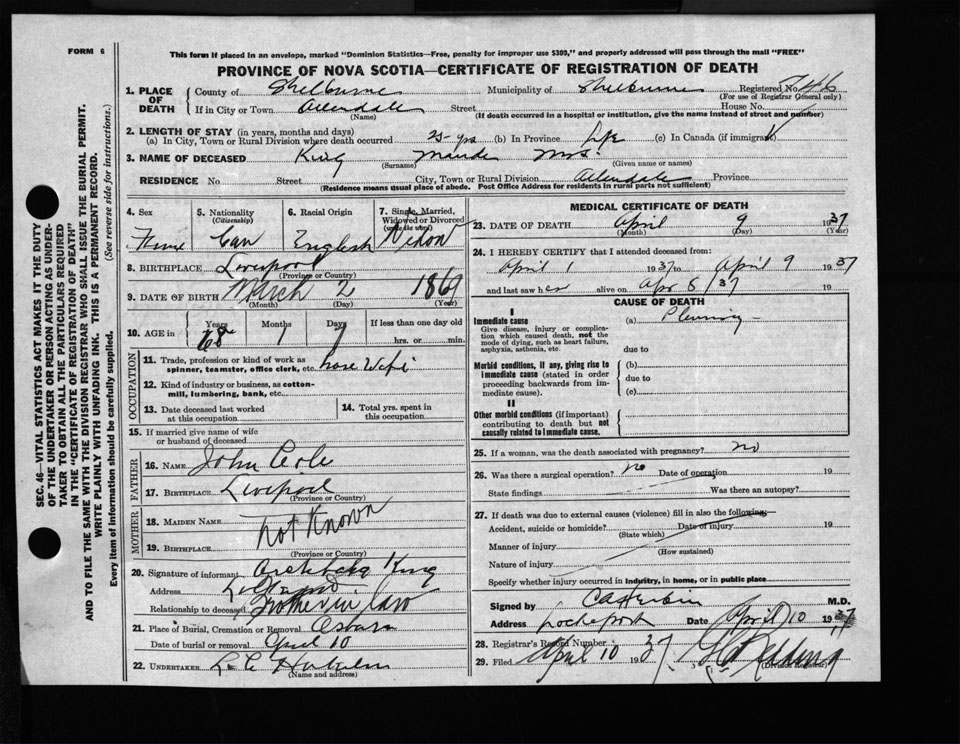 FORM 6
This form if placed in an envelope, marked "Dominion Statistics—Free, penalty for improper use $300," and properly addressed will pass through the mail "FREE"
PROVINCE OF NOVA SCOTIA—CERTIFICATE OF REGISTRATION OF DEATH
1. PLACE OF DEATH { County of Shelburne Municipality of Shelburne Registered No. 746
(For use of Registrar General only)
If in City or Town Allendale Street House No.
(Name) (If death occurred in a hospital or institution, give the name instead of street and number)
2. LENGTH OF STAY (in years, months and days)
(a) In City, Town or Rural Division where death occurred 25 yrs (b) In Province Life (c) In Canada (if immigrant)
3. NAME OF DECEASED King Maude Mrs.
(Surname) (Given name or names)
RESIDENCE No. Street City, Town or Rural Division Allendale Province
(Residence means usual place of abode. Post Office Address for residents in rural parts not sufficient)
4. Sex 5. Nationality (Citizenship) 6. Racial Origin 7. Single, Married, Widowed or Divorced (write the word)
Can English Widow
8. BIRTHPLACE Liverpool
(Province or Country)
9. DATE OF BIRTH March 2 1869
(Month) (Day) (Year)
10. AGE in Years Months Days If less than one day old
68 1 7 hrs. or min.
OCCUPATION
11. Trade, profession or kind of work as spinner, teamster, office clerk, etc. hose Wife
12. Kind of industry or business, as cotton-mill, lumbering, bank, etc.
13. Date deceased last worked at this occupation
14. Total yrs. spent in this occupation
15. If married give name of wife or husband of deceased
FATHER
16. NAME John
17. BIRTHPLACE Liverpool
(Province or Country)
MOTHER
18. MAIDEN NAME not Known
19. BIRTHPLACE
(Province or Country)
20. Signature of informant King
Address
Relationship to deceased Brother in law
21. Place of Burial, Cremation or Removal
Date of burial or removal April 10
22. UNDERTAKER
(Name and address)
MEDICAL CERTIFICATE OF DEATH
23. DATE OF DEATH April 9 1937
(Month) (Day) (Year)
24. I HEREBY CERTIFY that I attended deceased from:
April 1 1937 to April 9 1937
and last saw her alive on Apr 8/37
CAUSE OF DEATH
I
Immediate cause (a) Pleurisy
Give disease, injury or complication which caused death, not the mode of dying, such as heart failure, asphyxia, asthenia, etc.
due to
Morbid conditions, if any, giving rise to immediate cause (stated in order proceeding backwards from immediate cause). (b)
due to
(c)
II
Other morbid conditions (if important) contributing to death but not causally related to immediate cause.
25. If a woman, was the death associated with pregnancy? no
26. Was there a surgical operation? no Date of operation 19
State findings Was there an autopsy?
27. If death was due to external causes (violence) fill in also the following:
Accident, suicide or homicide? Date of injury 19
(State which)
Manner of injury
(How sustained)
Nature of injury
Specify whether injury occurred in industry, in home, or in public place
Signed by M.D.
Address Lockeport Date April 10 1937
28. Registrar's Record Number 37
29. Filed April 10 1937
(Division Registrar)
SEC. 46—VITAL STATISTICS ACT MAKES IT THE DUTY
OF THE UNDERTAKER OR PERSON ACTING AS UNDER-
TAKER TO OBTAIN ALL THE PARTICULARS REQUIRED
IN THE "CERTIFICATE OF REGISTRATION OF DEATH"
AND TO FILE THE SAME WITH THE DIVISION REGISTRAR WHO SHALL ISSUE THE BURIAL PERMIT.
WRITE PLAINLY WITH UNFADING INK. THIS IS A PERMANENT RECORD.
Every item of information should be carefully supplied. (See reverse side for instructions.)